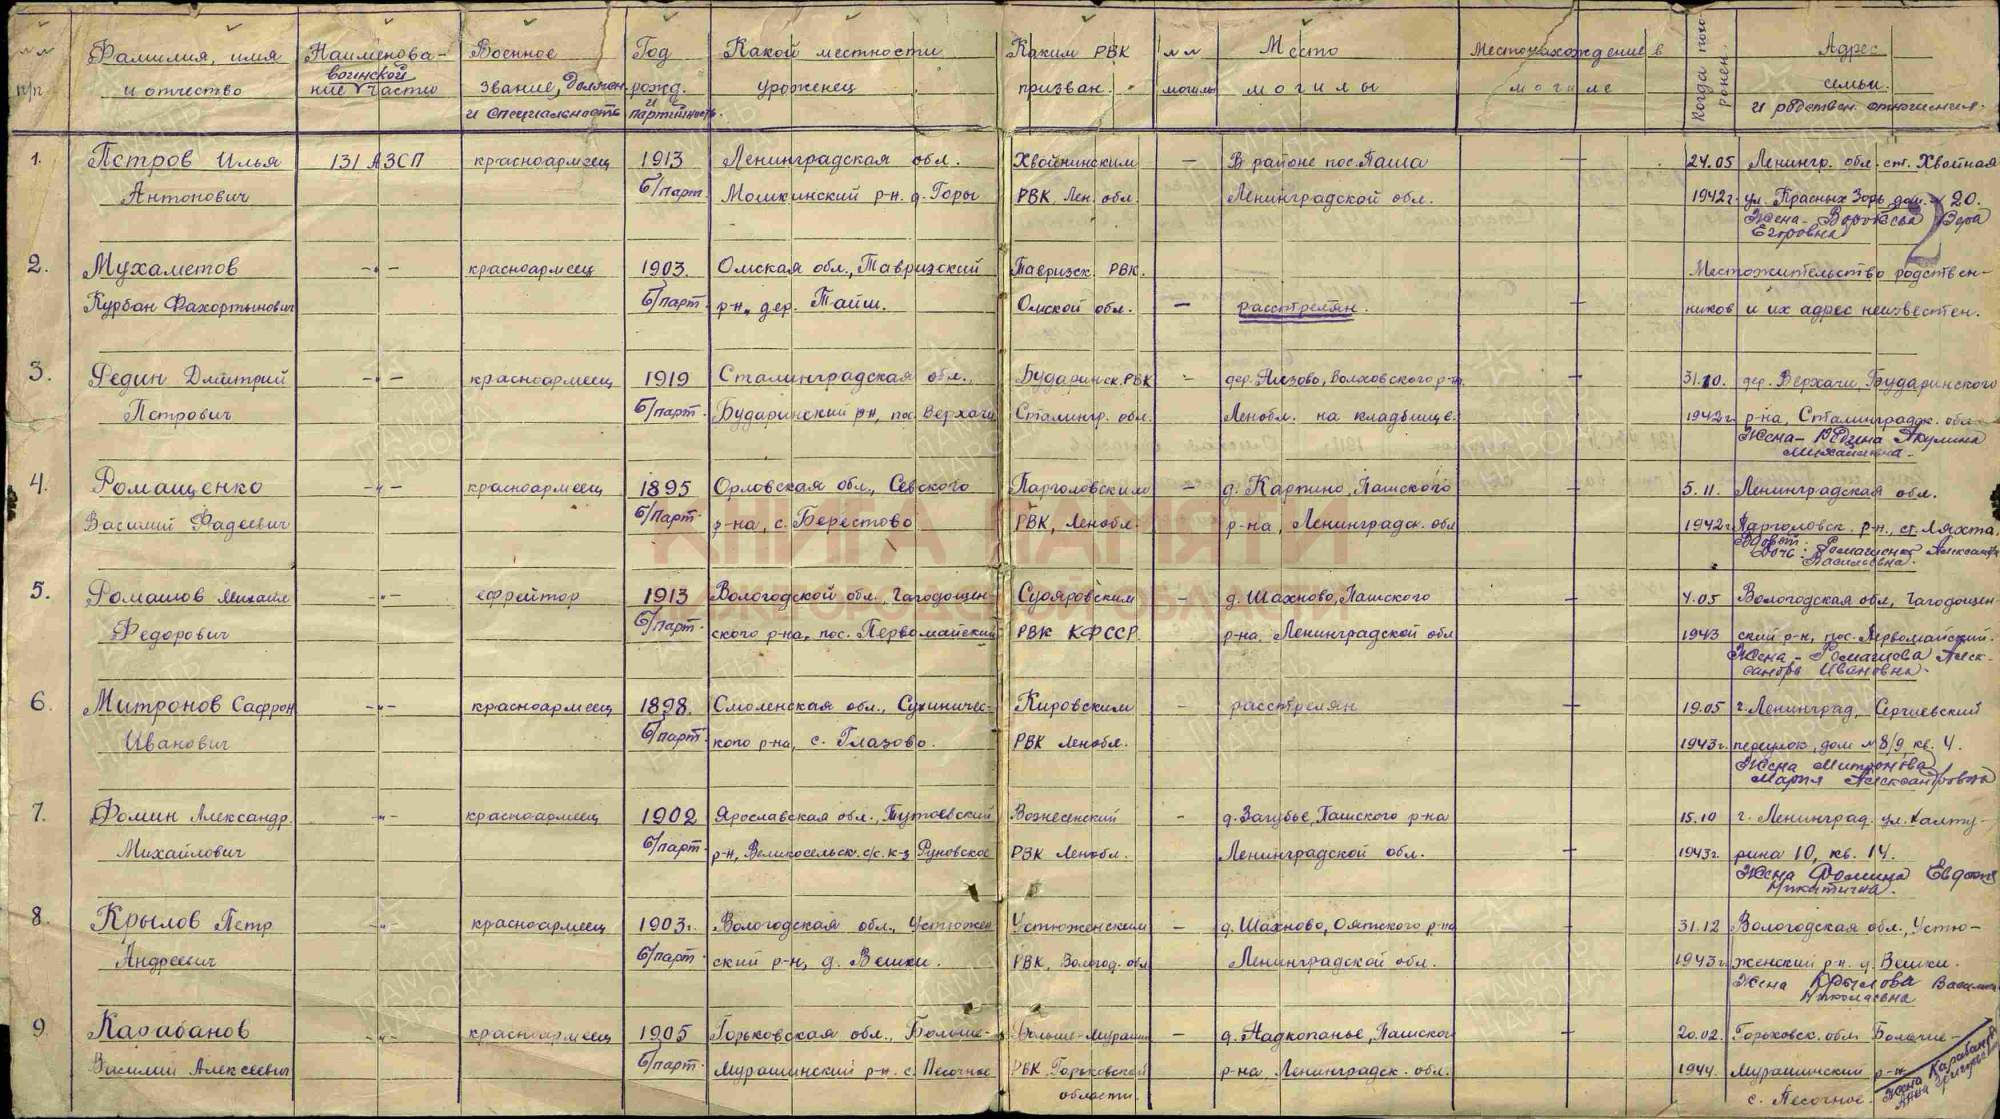 №№ Фамилия, имя Наименова- Военное Год Какой местности Каким РВК №№ Место Местонахождение в Когда похо- Адрес
п/п и отчество воинской ние части звание, должн. рожд. уроженец призван. могилы могилы могиле ронен. семьи
и специальность и партийность. и родствен. отношения.
1. Петров Илья 131 АЗСП красноармеец 1913 Ленинградская обл. Хвойнинским — В районе пос. Паша — 24.05 Ленингр. обл. ст. Хвойная
Антонович б/парт. Мошкинский р-н. д. Горы РВК Лен. обл. Ленинградской обл. 1942г. ул. Красных Зорь дом. № 20.
Жена - Воробьева Вера
Егоровна
2. Мухаметов -"- красноармеец 1903. Омская обл., Тавризский Тавризск. РВК. Местожительство родствен-
Курбан Фахортынович б/парт. р-н, дер. Тайш. Омской обл. — расстрелян. — ников и их адрес неизвестен.
3. Федин Дмитрий -"- красноармеец 1919 Сталинградская обл., Бударинск. РВК - дер. Яхново, Волховского р-на. — 31.10. дер. Верхачи, Бударинского
Петрович б/парт. Бударинский р-н, пос. Верхачи Сталингр. обл. Ленобл. на кладбище. 1942г. р-на, Сталинградск. обл.
Жена - Федина Акулина
Михайловна.
4. Ромащенко -"- красноармеец 1895 Орловская обл., Севского Парголовским - д. Карпино, Пашского — 5.11. Ленинградская обл.
Василий Фадеевич б/парт. р-на, с. Берестово РВК, Ленобл. р-на, Ленинградск. обл. 1942г. Парголовск. р-н, ст. Лахта.
Дочь: Ромащенко Александра
Васильевна.
5. Ромашов Михаил -"- ефрейтор 1913 Вологодской обл., Чагодощен- Суояровским - д. Шахново, Пашского — 4.05 Вологодская обл, Чагодощен-
Федорович б/парт. ского р-на, пос. Первомайский РВК КФССР. р-на, Ленинградской обл 1943 ский р-н, пос. Первомайский.
Жена - Ромашова Алек-
сандра Ивановна.
6. Митронов Сафрон -"- красноармеец 1898. Смоленская обл., Сухиничес- Кировским - расстрелян — 19.05 г. Ленинград, Сергиевский
Иванович б/парт. кого р-на, с. Глазово. РВК Ленобл. 1943г. переулок, дом № 8/9, кв. 4.
Жена Митронова
Мария Александровна
7. Фомин Александр. -"- красноармеец 1902 Ярославская обл., Тутаевский Вознесенский - д. Загубье, Пашского р-на 15.10 г. Ленинград. ул. Халту-
Михайлович б/парт. р-н, Великосельск. с/с. к-з Руновское РВК Ленобл. Ленинградской обл. — 1943г. рина 10, кв. 14.
Жена Фомина Евдокия
Никитична.
8. Крылов Петр -"- красноармеец 1903г. Вологодская обл., Устюжен Устюженским — д. Шахново, Оятского р-на — 31.12 Вологодская обл., Устю-
Андреевич б/парт. ский р-н, д. Вешки. РВК, Вологод. обл Ленинградской обл. 1943г. женский р-н. д. Вешки.
Жена Крылова Василиса
Николаевна
9. Карабанов -"- красноармеец 1905 Горьковская обл., Больше- Больше-Мурашк — д. Надкопанье, Пашског — 20.02. Горьковск. обл. Больше-
Василий Алексеевич б/парт. Мурашкинский р-н. с. Песочное РВК Горьковской р-на, Ленинградск. обл. 1944. Мурашкинский р-н.
области. с. Песочное. Жена Карабанова
Анна Григорьевна
КНИГА ПАМЯТИ
НИЖЕГОРОДСКОЙ ОБЛАСТИ
ПАМЯТЬ НАРОДА